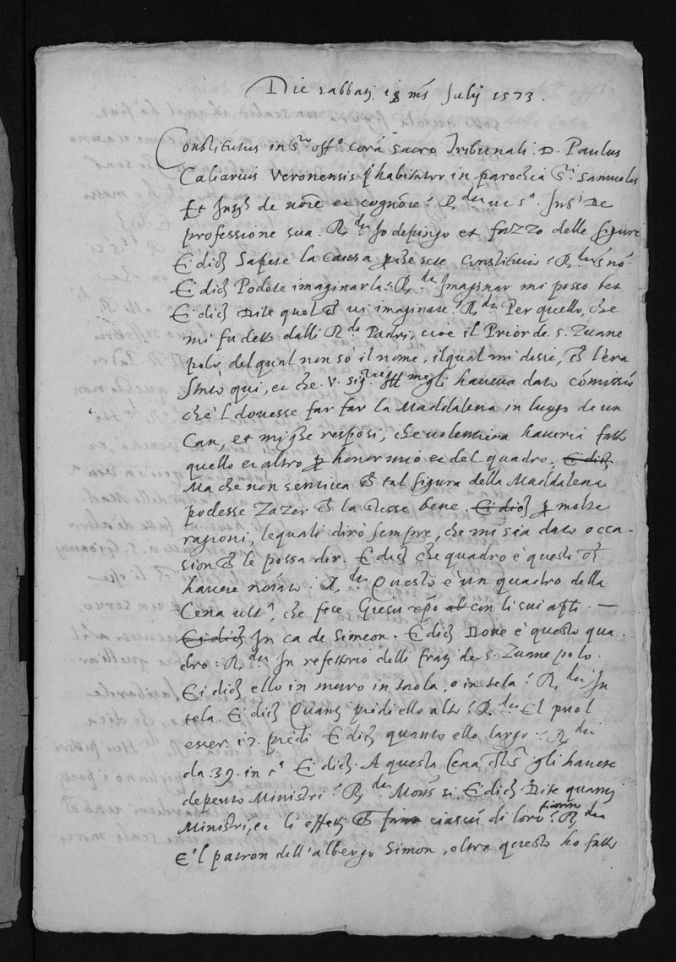 Die sabbati 18 ms Julij 1573.
Constitutus in Sto offo corā sacro Tribunali. D. Paulus
Caliarius Veronensis habitator in parochia Sti Samuelis
Et Intūs de noīe et cognoīe? Rdit ut sa. Intūs De
professione sua. Rdit Io depingo et fazzo delle figure
Ei dictū Sapete la causa perche sete Constituito? Rdit sr nō.
Ei dictū Podete imaginarla? Rdit Imaginar mi posso ben
Ei dictū Dite quel che vi imaginate. Rdit Per quello, che
mi fu detto dalli Rdi Padri, cioè il Prior de S. Zuane
polo, del qual non so il nome, ilqual mi disse, che l'era
stato qui, et che V. Sigrie Illme gli haveva dato cōmissiō
ch'el dovesse far far la Maddalena in luogo de un
Can, et mi ghe resposi, che volentiera haveria fatto
quello et altro per honor mio et del quadro. Ei dictū
Ma che non sentiva che tal figura della Maddalena
podesse zazer che la stesse bene. Ei dictū per molte
ragioni, lequali dirò sempre, che mi sia dato occa-
sion che le possa dir. Ei dictū che quadro è questo che
havete nominato? Rdit Questo è un quadro della
Cena ultma, che fece Giesu xpō ab con li sui apti. —
Ei dictū In ca de Simeon. Ei dictū Dove è questo qua-
dro? Rdit In refettorio delli frati de S. Zuane polo.
Ei dictū ello in muro in tavola, o in tela? Rdit In
tela. Ei dictū Quanti piedi ello alto? Rdit El puol
esser .17. piedi Ei dictū quanto ello largo? Rdit
da .39. in ca Ei dictū. A questa Cena gli havete
depento Ministri? Rdit Mons. si. Ei dictū Dite quanti
Ministri, et li effetti che ciascū di loro fanno? Rdit
E'l patron dell'albergo Simon, oltra questo ho fatto